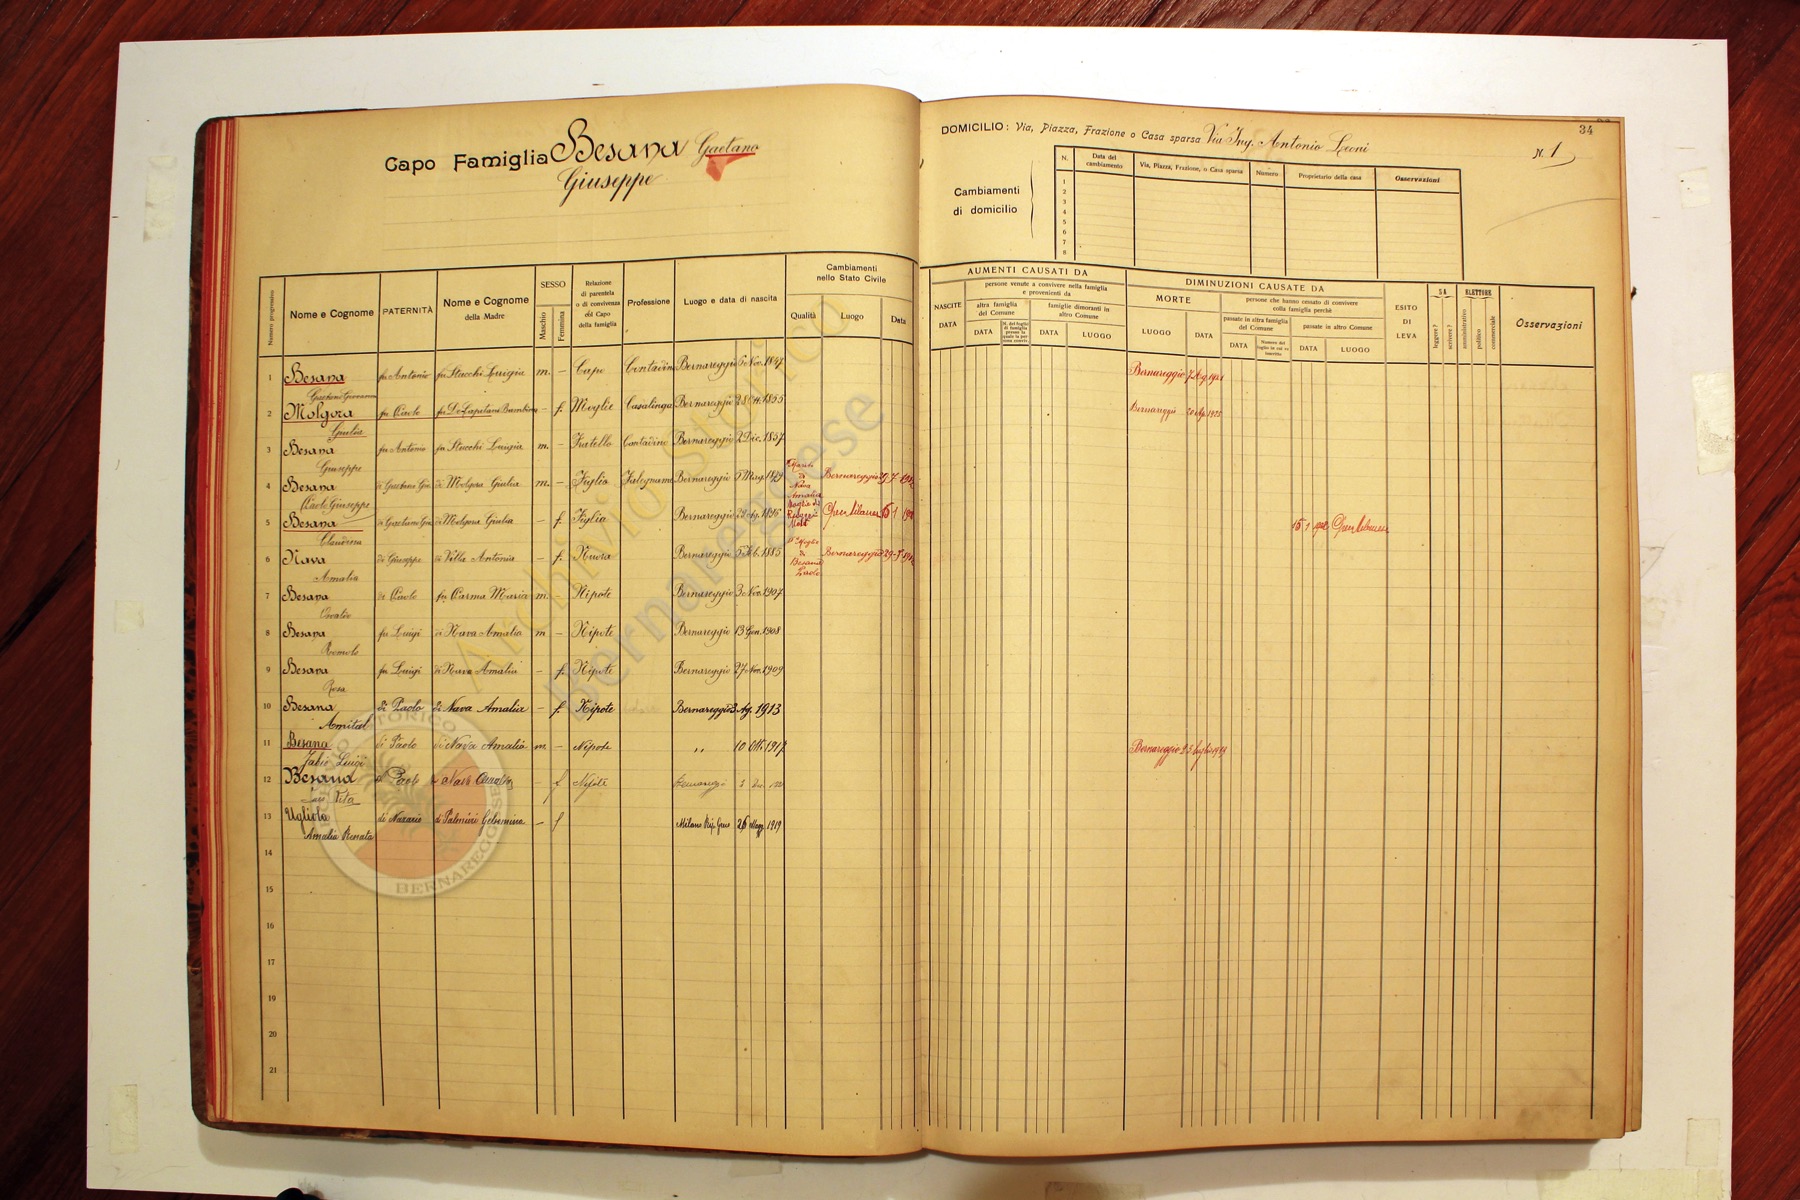 Capo Famiglia Besana Gaetano
Giuseppe
DOMICILIO: Via, Piazza, Frazione o Casa sparsa Via Ing. Antonio Leoni
N. 1
34
Cambiamenti
di domicilio
N. Data del cambiamento Via, Piazza, Frazione, o Casa sparsa Numero Proprietario della casa Osservazioni
1
2
3
4
5
6
7
8
Numero progressivo Nome e Cognome PATERNITÀ Nome e Cognome della Madre SESSO Maschio Femmina Relazione di parentela o di convivenza col Capo della famiglia Professione Luogo e data di nascita Cambiamenti nello Stato Civile Qualità Luogo Data
NASCITE DATA AUMENTI CAUSATI DA persone venute a convivere nella famiglia e provenienti da altra famiglia del Comune DATA famiglie dimoranti in altro Comune DATA LUOGO
DIMINUZIONI CAUSATE DA MORTE LUOGO DATA persone che hanno cessato di convivere colla famiglia perchè passate in altra famiglia del Comune DATA Numero del foglio in cui va inscritto passate in altro Comune DATA LUOGO
ESITO DI LEVA SA leggere? scrivere? ELETTORE amministrativo politico commerciale Osservazioni
1 Besana fu Antonio fu Stucchi Luigia m. – Capo Contadino Bernareggio 6 Nov. 1847 Bernareggio
Gaetano Giovanni
2 Molgora fu Paolo fu De Capitani Bambina – f. Moglie Casalinga Bernareggio 28 1855 Bernareggio 1925
Giulia
3 Besana fu Antonio fu Stucchi Luigia m. – Fratello Contadino Bernareggio 2 Dic. 1857
Giuseppe
4 Besana di Gaetano Giu di Molgora Giulia m. – Figlio Falegname Bernareggio 5 Mag. 1879 Marito di Nava Amalia Bernareggio 29-7-
Paolo Giuseppe
5 Besana di Gaetano Giu di Molgora Giulia – f. Figlia Bernareggio 15 1
Claudina
6 Nava di Giuseppe di Villa Antonia – f. Nuora Bernareggio 5 Feb. 1885 Moglie di Besana Paolo Bernareggio 29-7-
Amalia
7 Besana di Paolo fu Parma Maria m. – Nipote Bernareggio 3 Nov. 1907
Osvaldo
8 Besana fu Luigi di Nava Amalia m – Nipote Bernareggio 13 Gen. 1908
Romolo
9 Besana fu Luigi di Nava Amalia – f. Nipote Bernareggio 27 Nov. 1909
Rosa
10 Besana di Paolo di Nava Amalia – f. Nipote Bernareggio 3 Ag. 1913
Amital
11 Besana di Paolo di Nava Amalia m. – Nipote „ 10 Ott. 1917 Bernareggio 25 luglio 1919
Fabio Luigi
12 Besana di Paolo Nava Amalia – f Nipote Bernareggio
Vita
13 Ugliola di Nazario di Palmiri Gelsomina – f Milano 26 Magg. 1919
Amalia Renata
14
15
16
17
18
19
20
21
Archivio Storico
Bernareggese
ARCHIVIO STORICO BERNAREGGESE